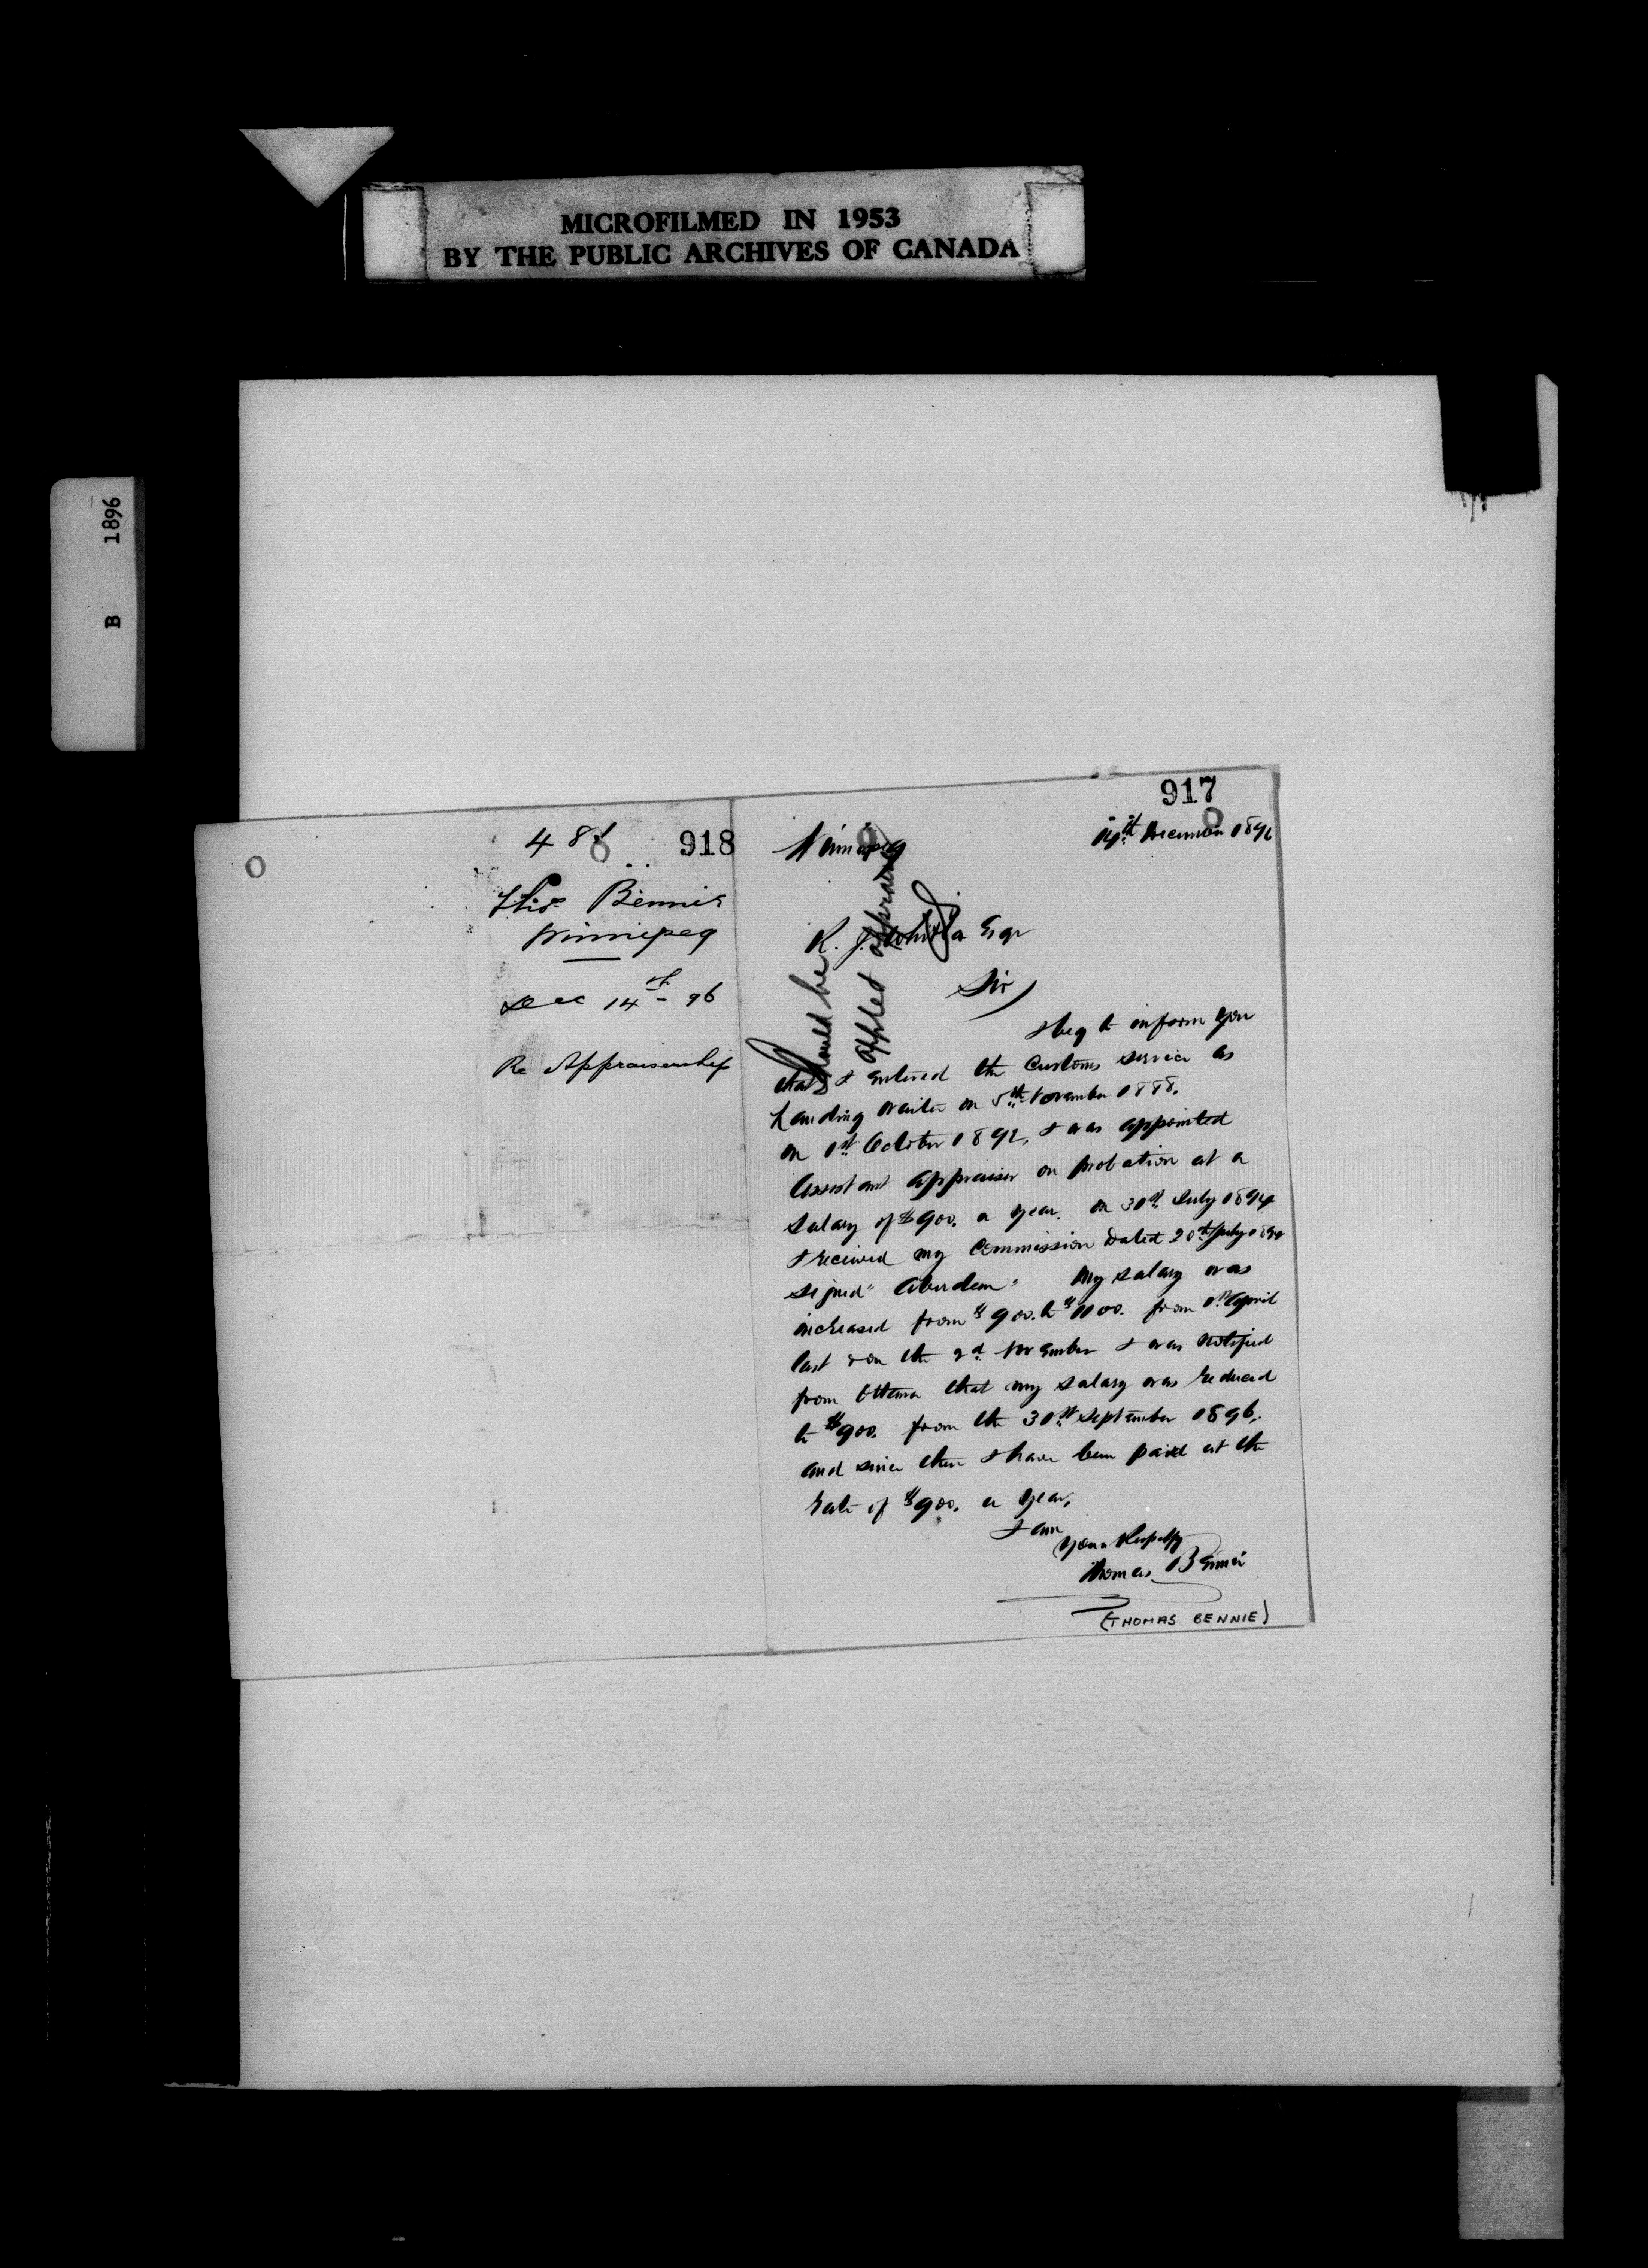 MICROFILMED IN 1953
BY THE PUBLIC ARCHIVES OF CANADA
B 1896
918
Thos Bennie
Winnipeg
Dec 14th - 96
Re Appraisership
917
Winnipeg
14th December 1896
R. J. Whitla Esqr
Should be
apptd appraiser
Sir,
I beg to inform you
that I entered the Customs service as
Landing waiter on 5th November 1888.
on 1st October 1892, I was appointed
Assistant appraiser on probation at a
salary of $900. a year. on 30th July 1894
I received my Commission dated 20th July 1894
signed "Aberdeen" My salary was
increased from $900. to $1100. from 1st April
last & on the 2d November I was notified
from Ottawa that my salary was reduced
to $900. from the 30th September 1896,
and since then I have been paid at the
rate of $900. a year,
I am
Yours Respectfy
Thomas Bennie
(THOMAS BENNIE)